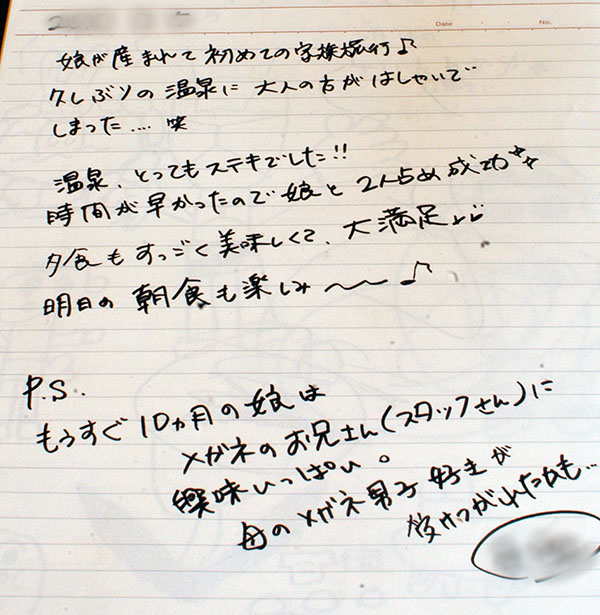 Date
No.
娘が産まれて初めての家族旅行♪
久しぶりの温泉に大人の方がはしゃいで
しまった.... 笑
温泉、とってもステキでした!!
時間が早かったので娘と2人占め成功☆☆
夕食もすっごく美味しくて、大満足♪
明日の朝食も楽しみ〜〜♪
P.S.
もうすぐ10ヵ月の娘は
メガネのお兄さん(スタッフさん)に
興味いっぱい。
母のメガネ男子好きが
受けつがれたかも...